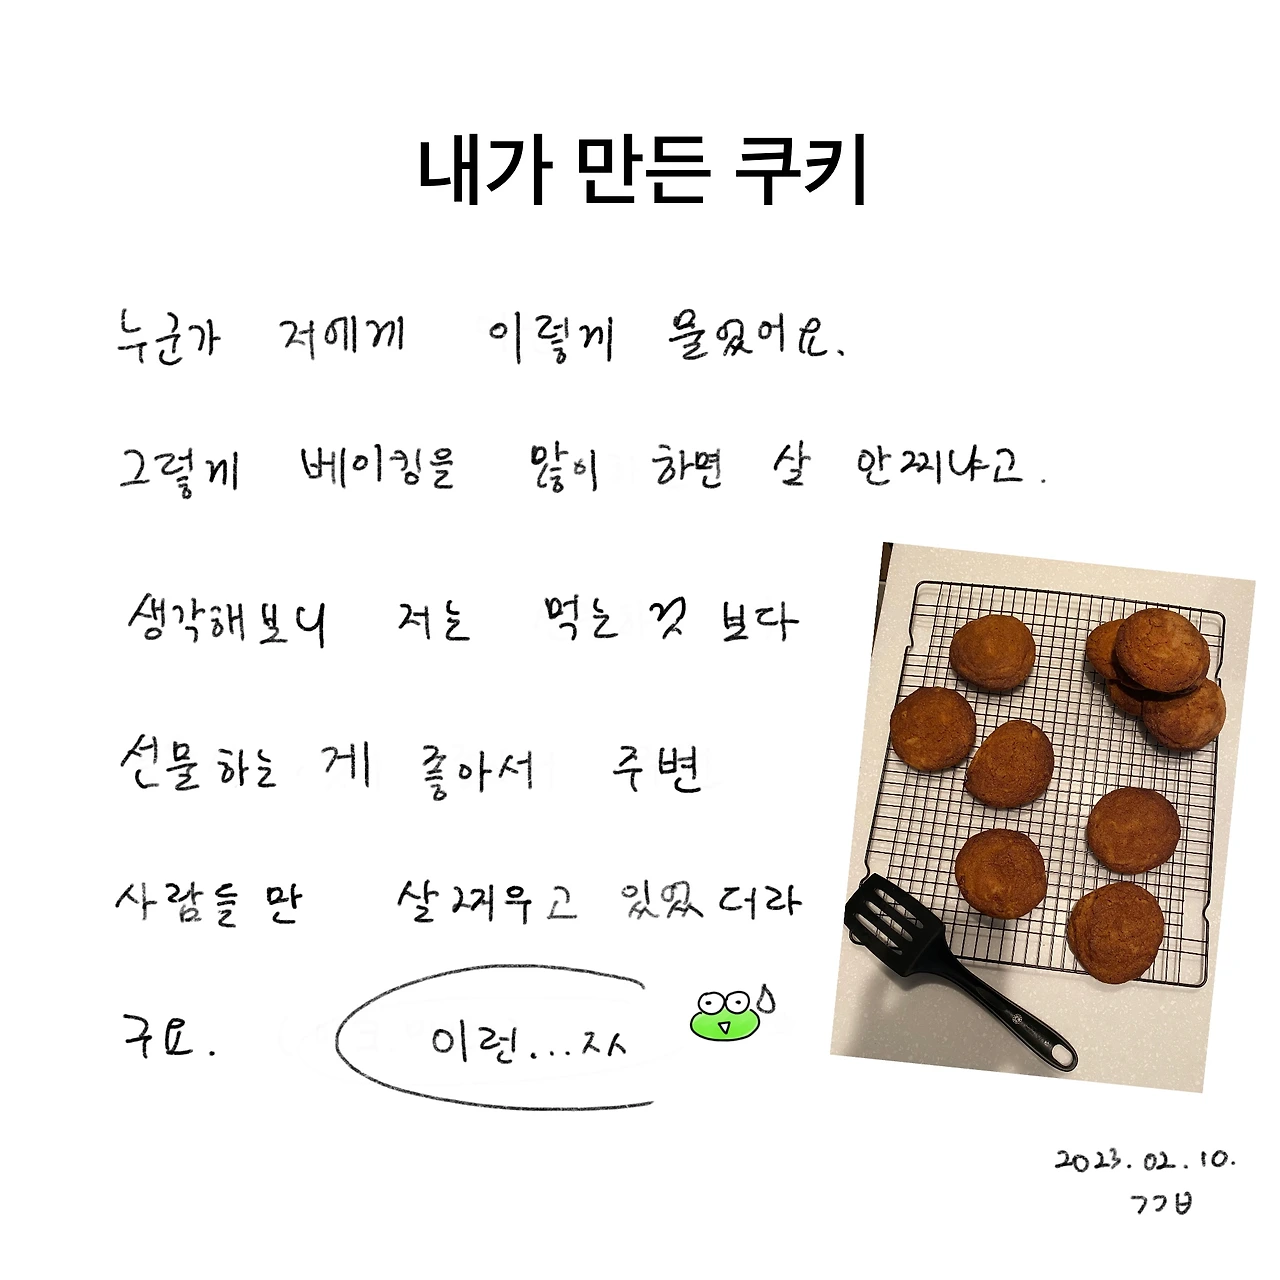 내가 만든 쿠키
누군가 저에게 이렇게 물었어요.
그렇게 베이킹을 많이 하면 살 안찌냐고.
생각해보니 저는 먹는 것 보다
선물하는 게 좋아서 주변
사람들만 살찌우고 있었더라
구요.
이런...ㅈㅅ
2023.02.10.
ㄱㄱㅂ